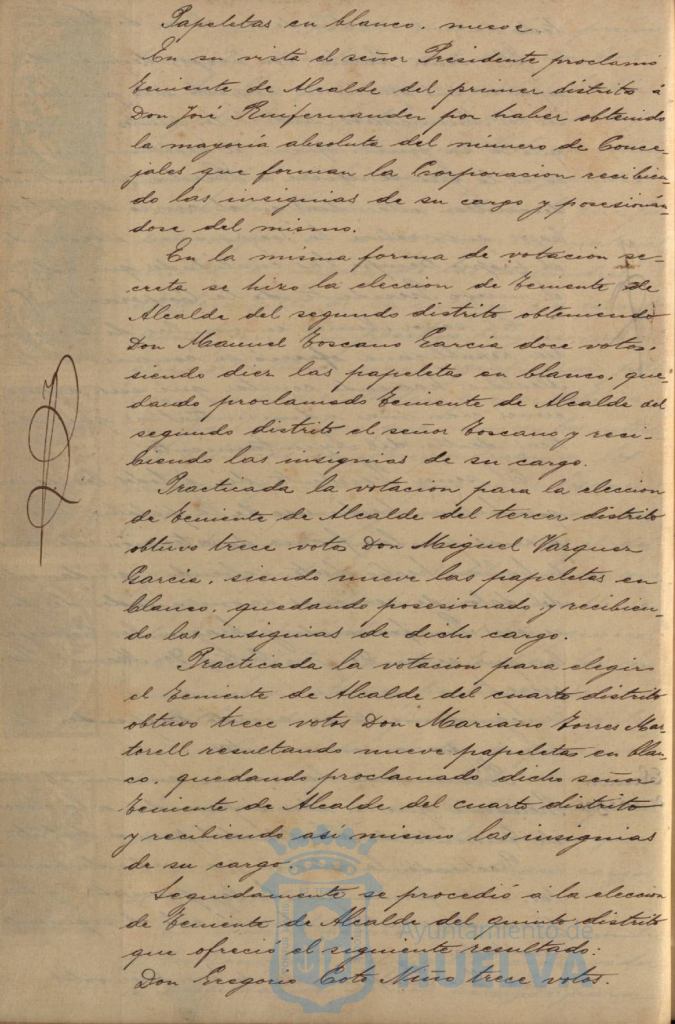 Papeletas en blanco. nueve.
En su vista el señor Presidente proclamó
Teniente de Alcalde del primer distrito á
Don José Ruifernandez por haber obtenido
la mayoria absoluta del número de Conce-
jales que forman la Corporacion recibien-
do las insignias de su cargo y posesionán-
dose del mismo.
En la misma forma de votacion se-
creta se hizo la eleccion de Teniente de
Alcalde del segundo distrito obteniendo
Don Manuel Toscano Garcia doce votos.
siendo diez las papeletas en blanco, que-
dando proclamado Teniente de Alcalde del
segundo distrito el señor Toscano y reci-
biendo las insignias de su cargo.
Practicada la votacion para la eleccion
de Teniente de Alcalde del tercer distrito
obtuvo trece votos Don Miguel Vazquez
Garcia, siendo nueve las papeletas en
blanco, quedando posesionado y recibien-
do las insignias de dicho cargo.
Practicada la votacion para elegir
el Teniente de Alcalde del cuarto distrito
obtuvo trece votos Don Mariano Torres Mar-
torell resultando nueve papeletas en blan-
co, quedando proclamado dicho señor
Teniente de Alcalde del cuarto distrito
y recibiendo asi mismo las insignias
de su cargo.
Seguidamente se procedió á la eleccion
de Teniente de Alcalde del quinto distrito
que ofreció el siguiente resultado:
Don Gregorio Coto Niño trece votos.
Ayuntamiento de
HUELVA